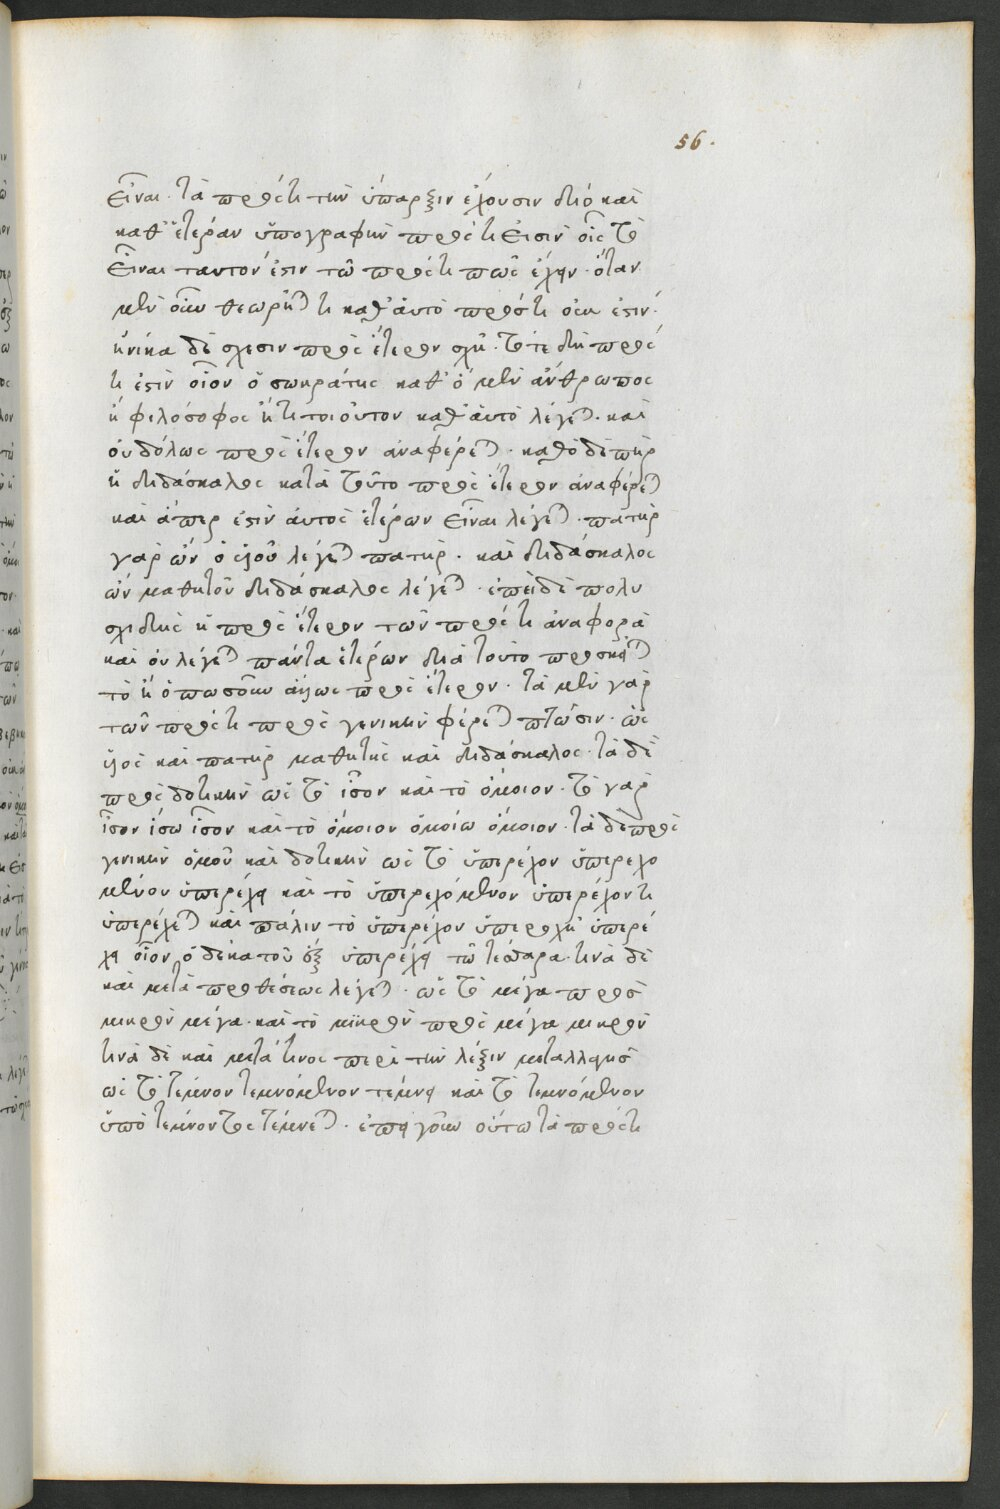 56.
εἶναι· τὰ πρός τι τὴν ὕπαρξιν ἔχουσιν διὸ καὶ
καθ' ἑτέραν ὑπογραφὴν πρός τι εἰσὶν οἷς τὸ
εἶναι ταυτόν ἐστιν τῶ πρός τι πως ἔχειν· ὅταν
μὲν οὖν θεωρῆται τι καθ' αὐτὸ πρός τι οὐκ ἐστιν·
ἡνίκα δὲ σχεσιν πρὸς ἕτερον σχῆ· τότε δὴ πρός
τι ἐστὶν οἷον ὁ σωκράτης καθ' ὃ μὲν ἄνθρωπος
ἢ φιλόσοφος ἤ τι τοιοῦτον καθ' αὐτὸ λέγεται· καὶ
οὐδόλως πρὸς ἕτερον ἀναφέρεται· καθὸ δὲ πατὴρ
ἢ διδάσκαλος κατὰ τοῦτο πρὸς ἕτερον ἀναφέρεται
καὶ ἅπερ ἐστὶν αὐτὸς ἑτέρων εἶναι λέγεται· πατὴρ
γὰρ ὢν ὁ υἱοῦ λέγεται πατήρ· καὶ διδάσκαλος
ὢν μαθητοῦ διδάσκαλος λέγεται· ἐπεὶ δὲ πολυ
σχιδὴς ἡ πρὸς ἕτερον τῶν πρός τι ἀναφορὰ
καὶ οὐ λέγεται πάντα ἑτέρων διὰ τοῦτο πρόσκειται
τὸ ἢ ὁπωσοῦν ἄλλως πρὸς ἕτερον· τὰ μὲν γὰρ
τῶν πρός τι πρὸς γενικὴν φέρεται πτῶσιν· ὡς
υἱὸς καὶ πατὴρ μαθητὴς καὶ διδάσκαλος· τὰ δὲ
πρὸς δοτικὴν ὡς τὸ ἶσον καὶ τὸ ὅμοιον· τὸ γὰρ
ἶσον ἴσω ἶσον καὶ τὸ ὅμοιον ὁμοίω ὅμοιον· τὰ δὲ πρὸς
γενικὴν ὁμοῦ καὶ δοτικὴν ὡς τὸ ὑπερέχον ὑπερεχο
μένου ὑπερέχει καὶ τὸ ὑπερεχόμενον ὑπερέχοντι
ὑπερέχεται καὶ πάλιν τὸ ὑπερέχον ὑπεροχῆ ὑπερέ
χει οἷον ὁ δέκα τοῦ ἓξ ὑπερέχει τῶ τέσσαρα· τινὰ δὲ
καὶ μετὰ προθέσεως λέγεται· ὡς τὸ μέγα πρὸς
μικρὸν μέγα· καὶ τὸ μικρὸν πρὸς μέγα μικρὸν
τινὰ δὲ καὶ μετά τινος περὶ τὴν λέξιν μεταλλήψεως
ὡς τὸ τέμνον τεμνόμενον τέμνει καὶ τὸ τεμνόμενον
ὑπὸ τέμνοντος τέμνεται· ἐπεὶ γοῦν οὕτω τὰ πρός τι